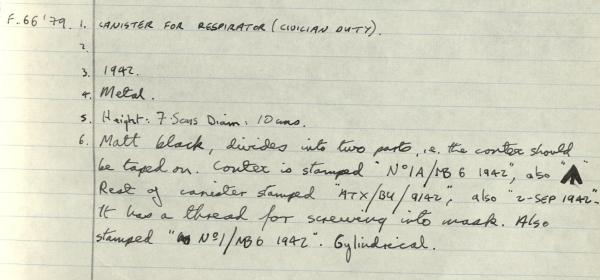 F.66'79. 1. CANISTER FOR RESPIRATOR (CIVILIAN DUTY).
2.
3. 1942.
4. Metal.
5. Height: 7.5cms Diam: 10cms.
6. Matt black, divides into two parts, i.e. the contex should
be taped on. Contex is stamped "No1A/MB 6 1942", also "
Rest of canister stamped "ATX/BU/9/42", also "2-SEP 1942".
It has a thread for screwing into mask. Also
stamped " No1/MB6 1942". Cylindrical.